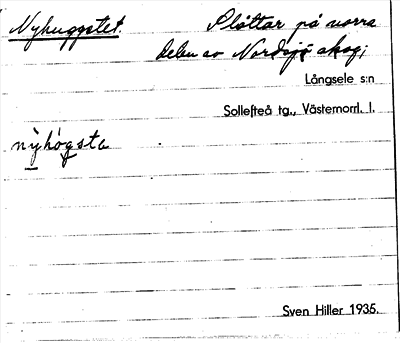 Nyhuggstet. Slåttar på norra
delen av Nordsjö skog;
Långsele s:n
Sollefteå tg., Västernorrl. l.
nỳhògsta
Sven Hiller 1935.